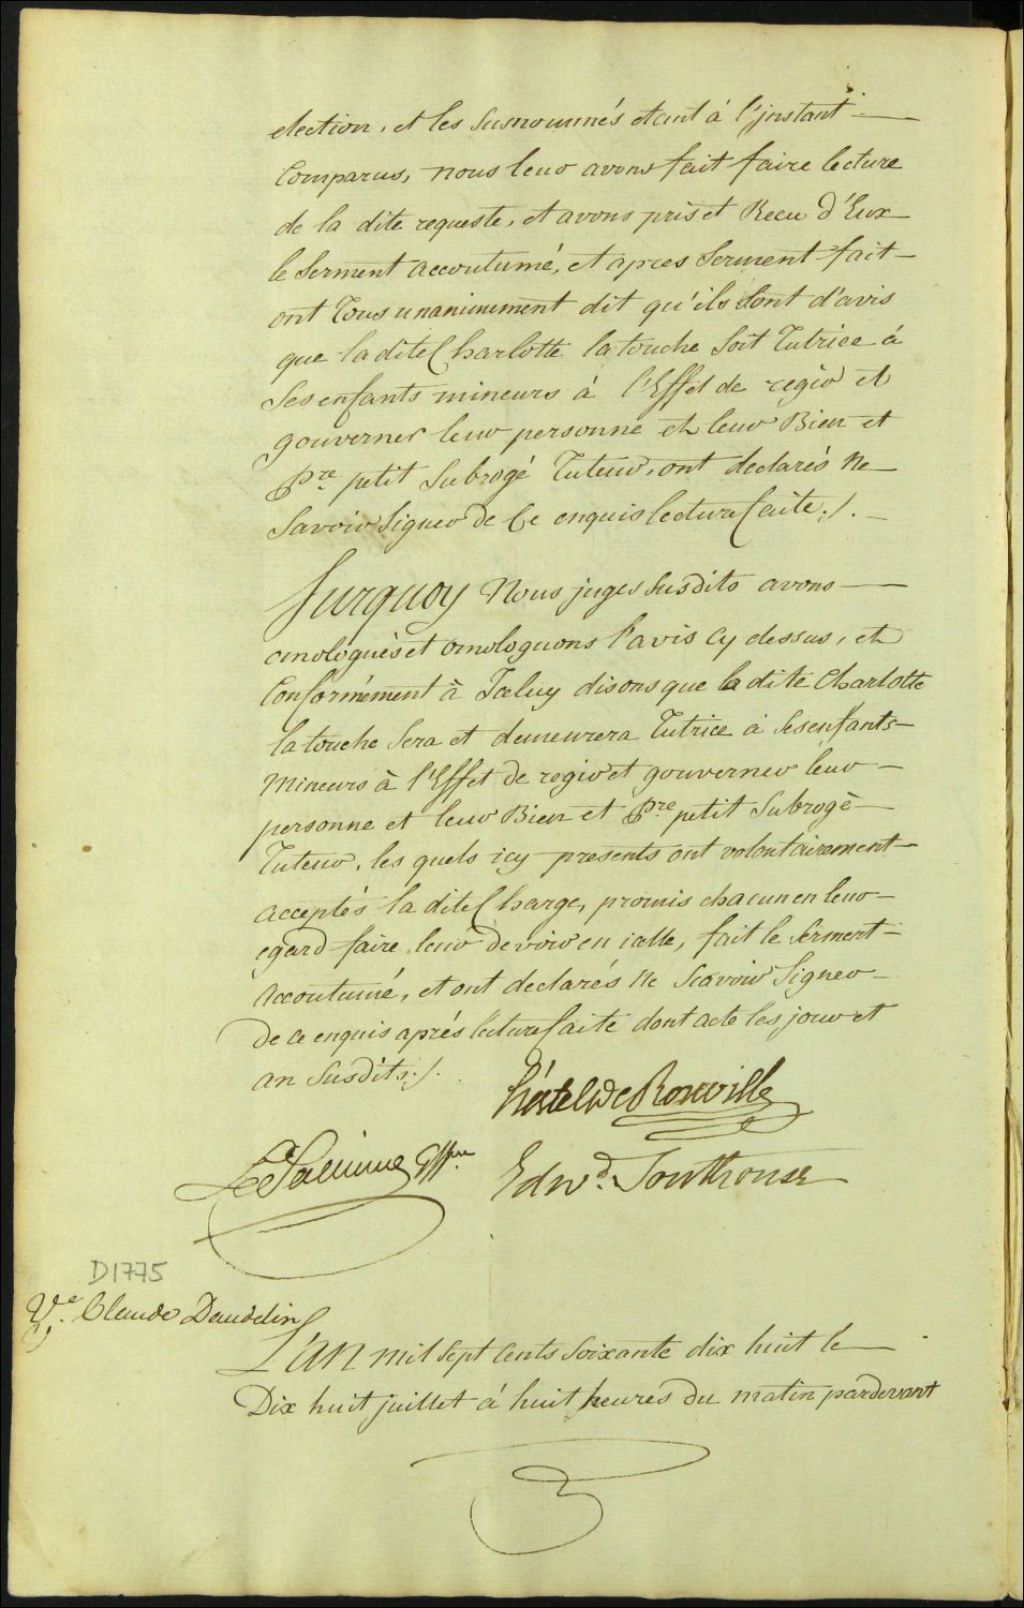 election, et les susnommés etant à l'jnstant
Comparus, nous leur avons fait faire lecture
de la dite requeste, et avons pris et Recu d'Eux
le Serment accoutumé, et apres Serment fait
ont Tous unanimement dit qu'ils sont d'avis
que la dite Charlotte latouche Soit Tutrice à
Ses enfants mineurs à l'Effet de regir et
gouverner leur personne et leur Bien et
Pre petit Subrogé Tuteur, ont declarés ne
Savoir Signer de Ce enquis lecture faite ./.
Surquoy Nous juges Susdits avons
omologués et omologuons l'avis Cy dessus, et
Conformement à Jceluy disons que la dite Charlotte
latouche Sera et demeurera Tutrice à Ses enfants
Mineurs à l'Effet de regir et gouverner leur
personne et leur Bien et Pre petit Subrogé
Tuteur, les quels icy presents ont volontairement
acceptés la dite Charge, promis chacun en leur
egard faire leur devoir en icelle, fait le Serment
Accoutumé, et ont declarés ne Scavoir Signer
De ce enquis aprés lecture faite dont acte les jour et
an Susdits ./.
hertel De Rouville
Edwd. Southouse
D1775
Ve. Claude Daudelin
L'AN mil Sept cents Soixante dix huit le
Dix huit juillet à huit heures Du matin pardevant